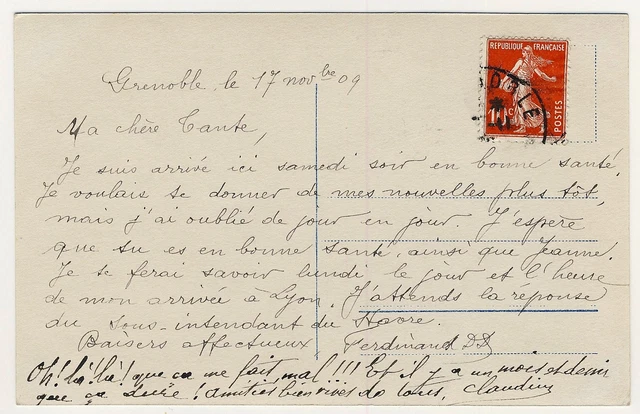 RÉPUBLIQUE FRANÇAISE
POSTES
10 c
Grenoble le 17 novbre 09
Ma chère Tante,
Je suis arrivé ici samedi soir en bonne santé.
Je voulais te donner de mes nouvelles plus tôt,
mais j'ai oublié de jour en jour. J'espère
que tu es en bonne santé, ainsi que Jeanne.
Je te ferai savoir lundi le jour et l'heure
de mon arrivée à Lyon. J'attends la réponse
du sous-intendant du Havre.
Baisers affectueux Ferdinand DD
Oh! là! là! que ça me fait mal!!! Et il y a un mois et demi
que ça dure! amitiés bien vives de tous, Claudius